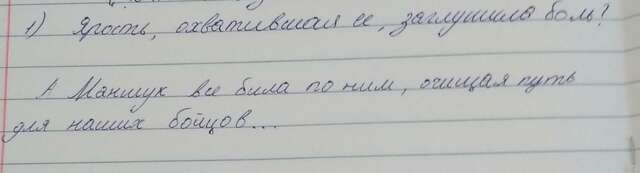 1) Ярость, охватившая ее, заглушила боль?
А Маншук все била по ним, очищая путь
для наших бойцов...